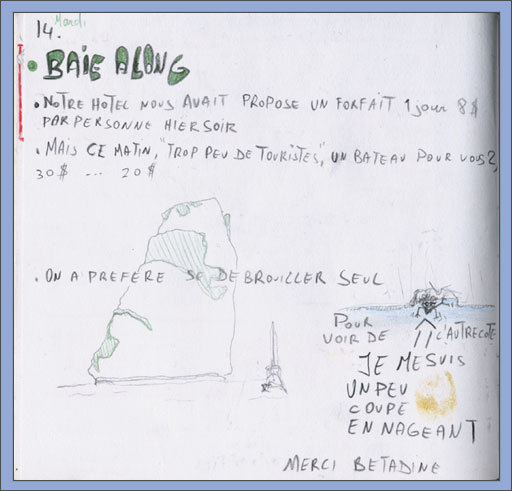 14. Mardi
BAIE ALONG
• NOTRE HOTEL NOUS AVAIT PROPOSE UN FORFAIT 1 jour 8$
PAR PERSONNE HIER SOIR
• MAIS CE MATIN, "TROP PEU DE TOURISTES," UN BATEAU POUR VOUS 2,
30$ ... 20$
• ON A PREFERE SE DEBROUILLER SEUL
POUR
VOIR DE L'AUTRE COTE
JE ME SUIS
UN PEU
COUPE
EN NAGEANT
MERCI BETADINE